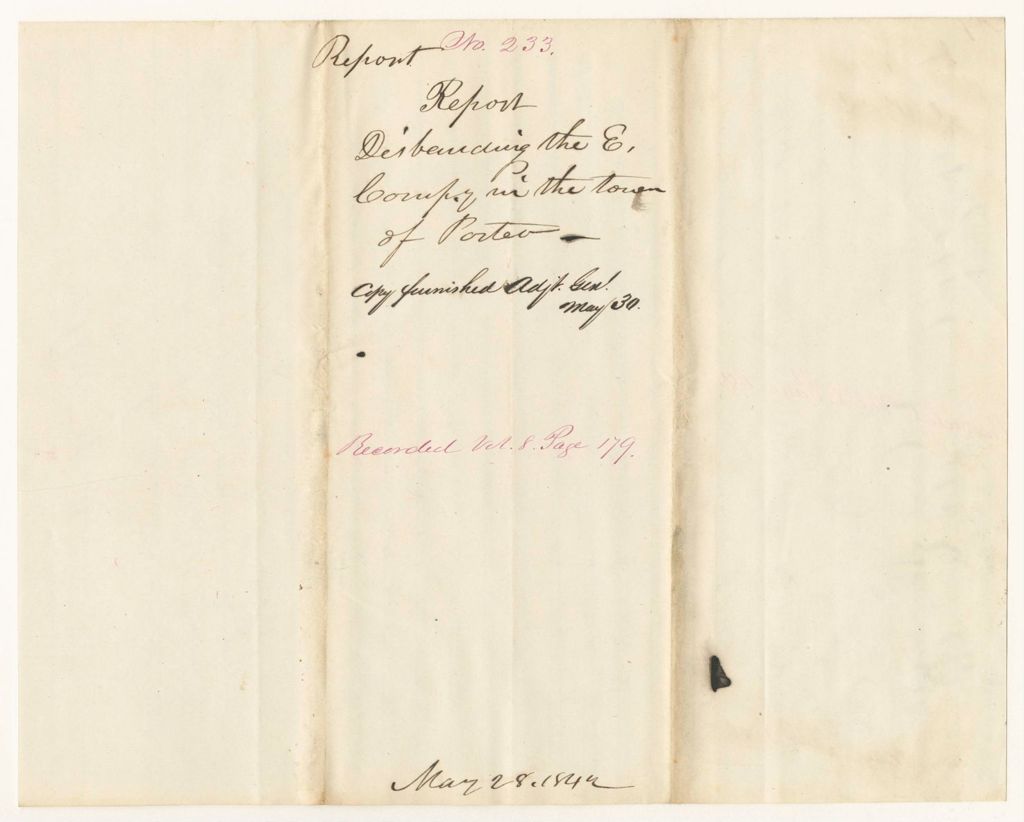 Report No. 233.
Report
Disbanding the E.
Comp.y in the town
of Porter —
Copy furnished Adjt. Genl.
May 30.
Recorded Vol. 8. Page 179.
May 28. 1842